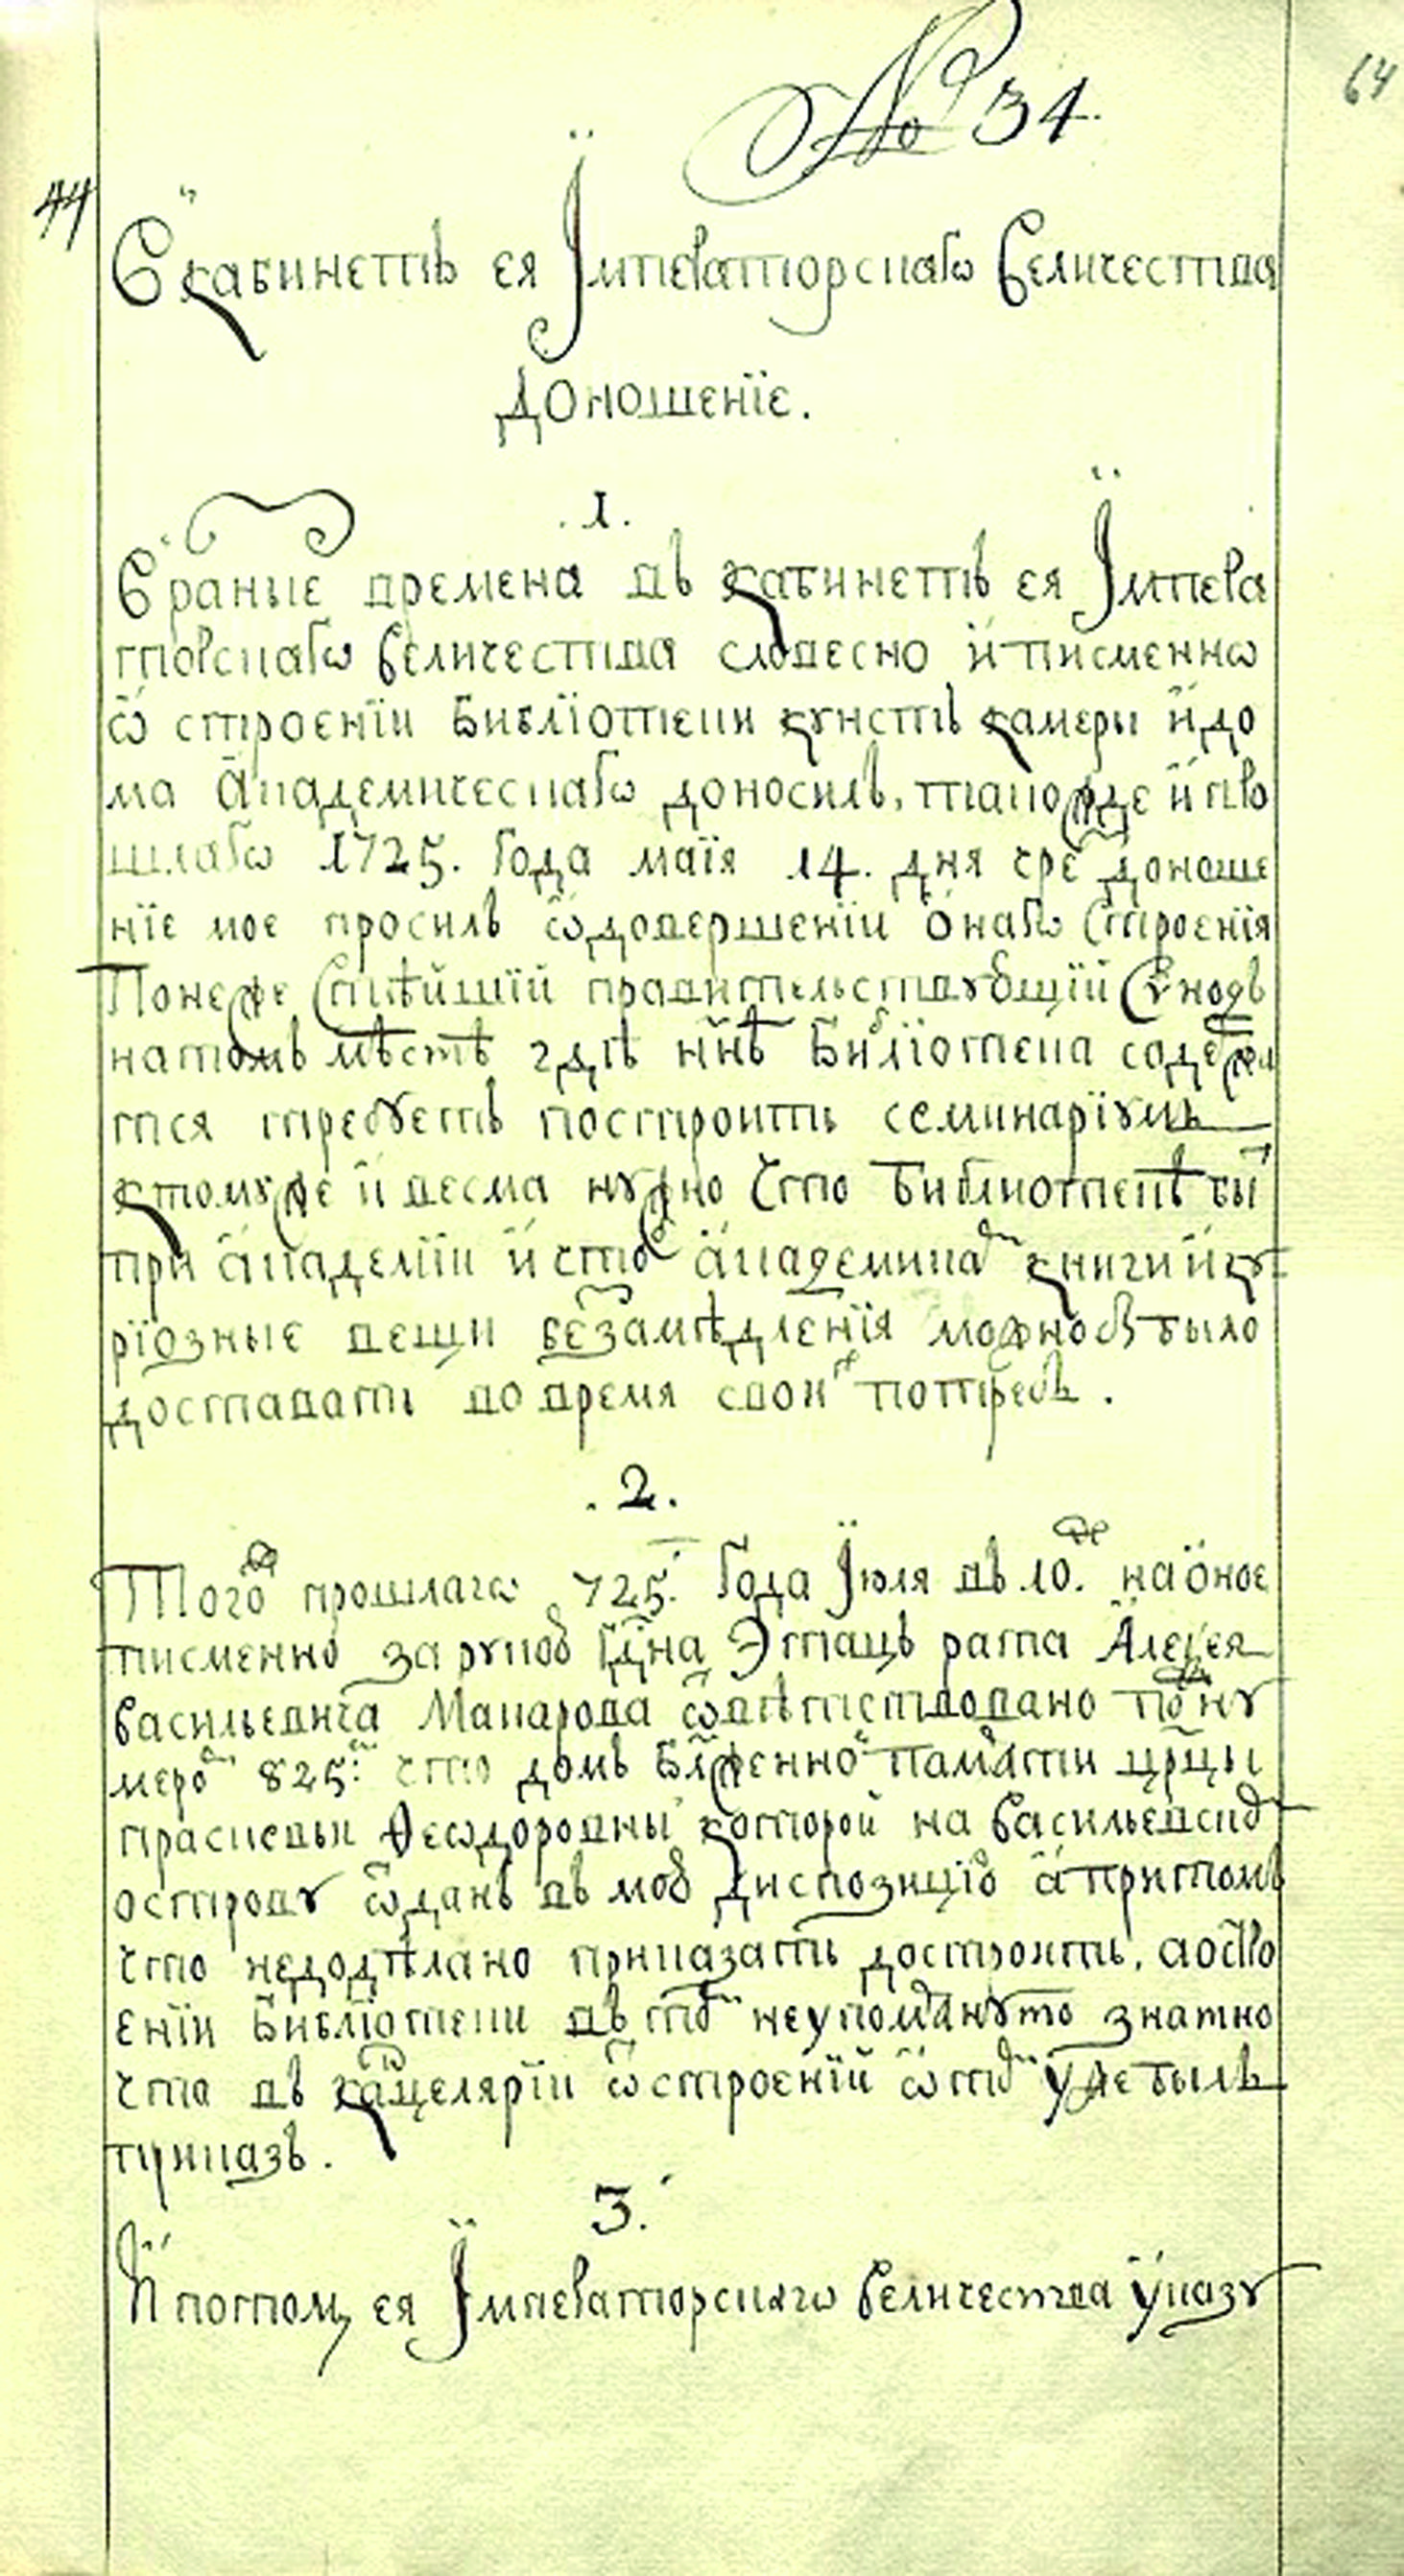 № 34.
64
44
В кабинетъ ея Імператорскагѡ Величества
Доношенїе.
.1.
В разные времена въ кабинетъ ея Імпера
торскагѡ величества словесно и писменнѡ
ѡ строенїи библїотеки кунстъ камеры и до
ма академическагѡ доносилъ, такожде и про
шлагѡ 1725. года маїя 14. дня чре доноше
нїе мое просилъ ѡ довершенїи онагѡ строенїя
Понеже стѣйшїй правительствующїй Сѵнодъ
на томъ мѣстѣ гдѣ ннѣ библїотека содержи
тся требуетъ построить семинарїумъ
к тому же и весма нужно что библиотекѣ бы
при академїи и чтоб академикам книги и ку
рїозные вещи без замѣдленїя можно бъ было
доставать во время свои потребъ.
.2.
Того ж прошлагѡ 725. года Іюля въ 10. де на оное
писменно за рукою гдна Этацъ рата Алеѯея
васильевича Макарова ѡвѣтствовано под ну
меро 825. что домъ блженно памяти црцы
прасковьи Ѳеѡдоровны которой на васильевску
острову ѡданъ въ мою диспозицїю а при томъ
что недодѣлано приказать достроить. а о стро
енїи библїотеки въ то неупомянуто знатно
что въ канцелярїи ѡ строенїй ѡ то уже былъ
приказъ.
3.
И по том, ея Імператорскагѡ величества указу